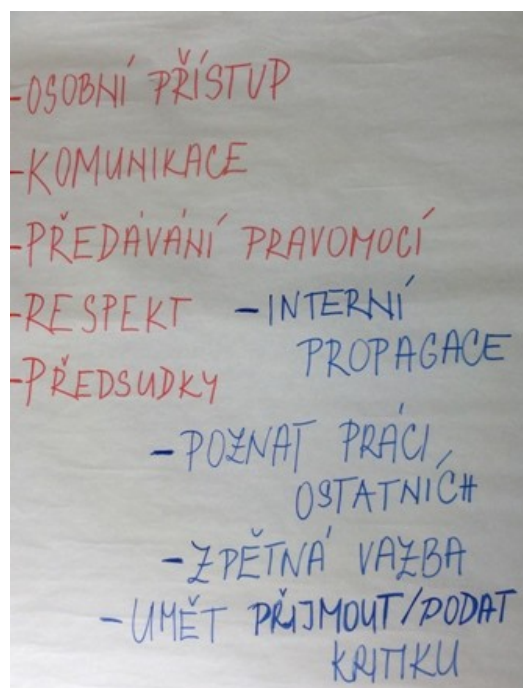 -OSOBNÍ PŘÍSTUP
-KOMUNIKACE
-PŘEDÁVÁNÍ PRAVOMOCÍ
-RESPEKT
-PŘEDSUDKY
-INTERNÍ
PROPAGACE
-POZNAT PRÁCI
OSTATNÍCH
-ZPĚTNÁ VAZBA
-UMĚT PŘIJMOUT/PODAT
KRITIKU